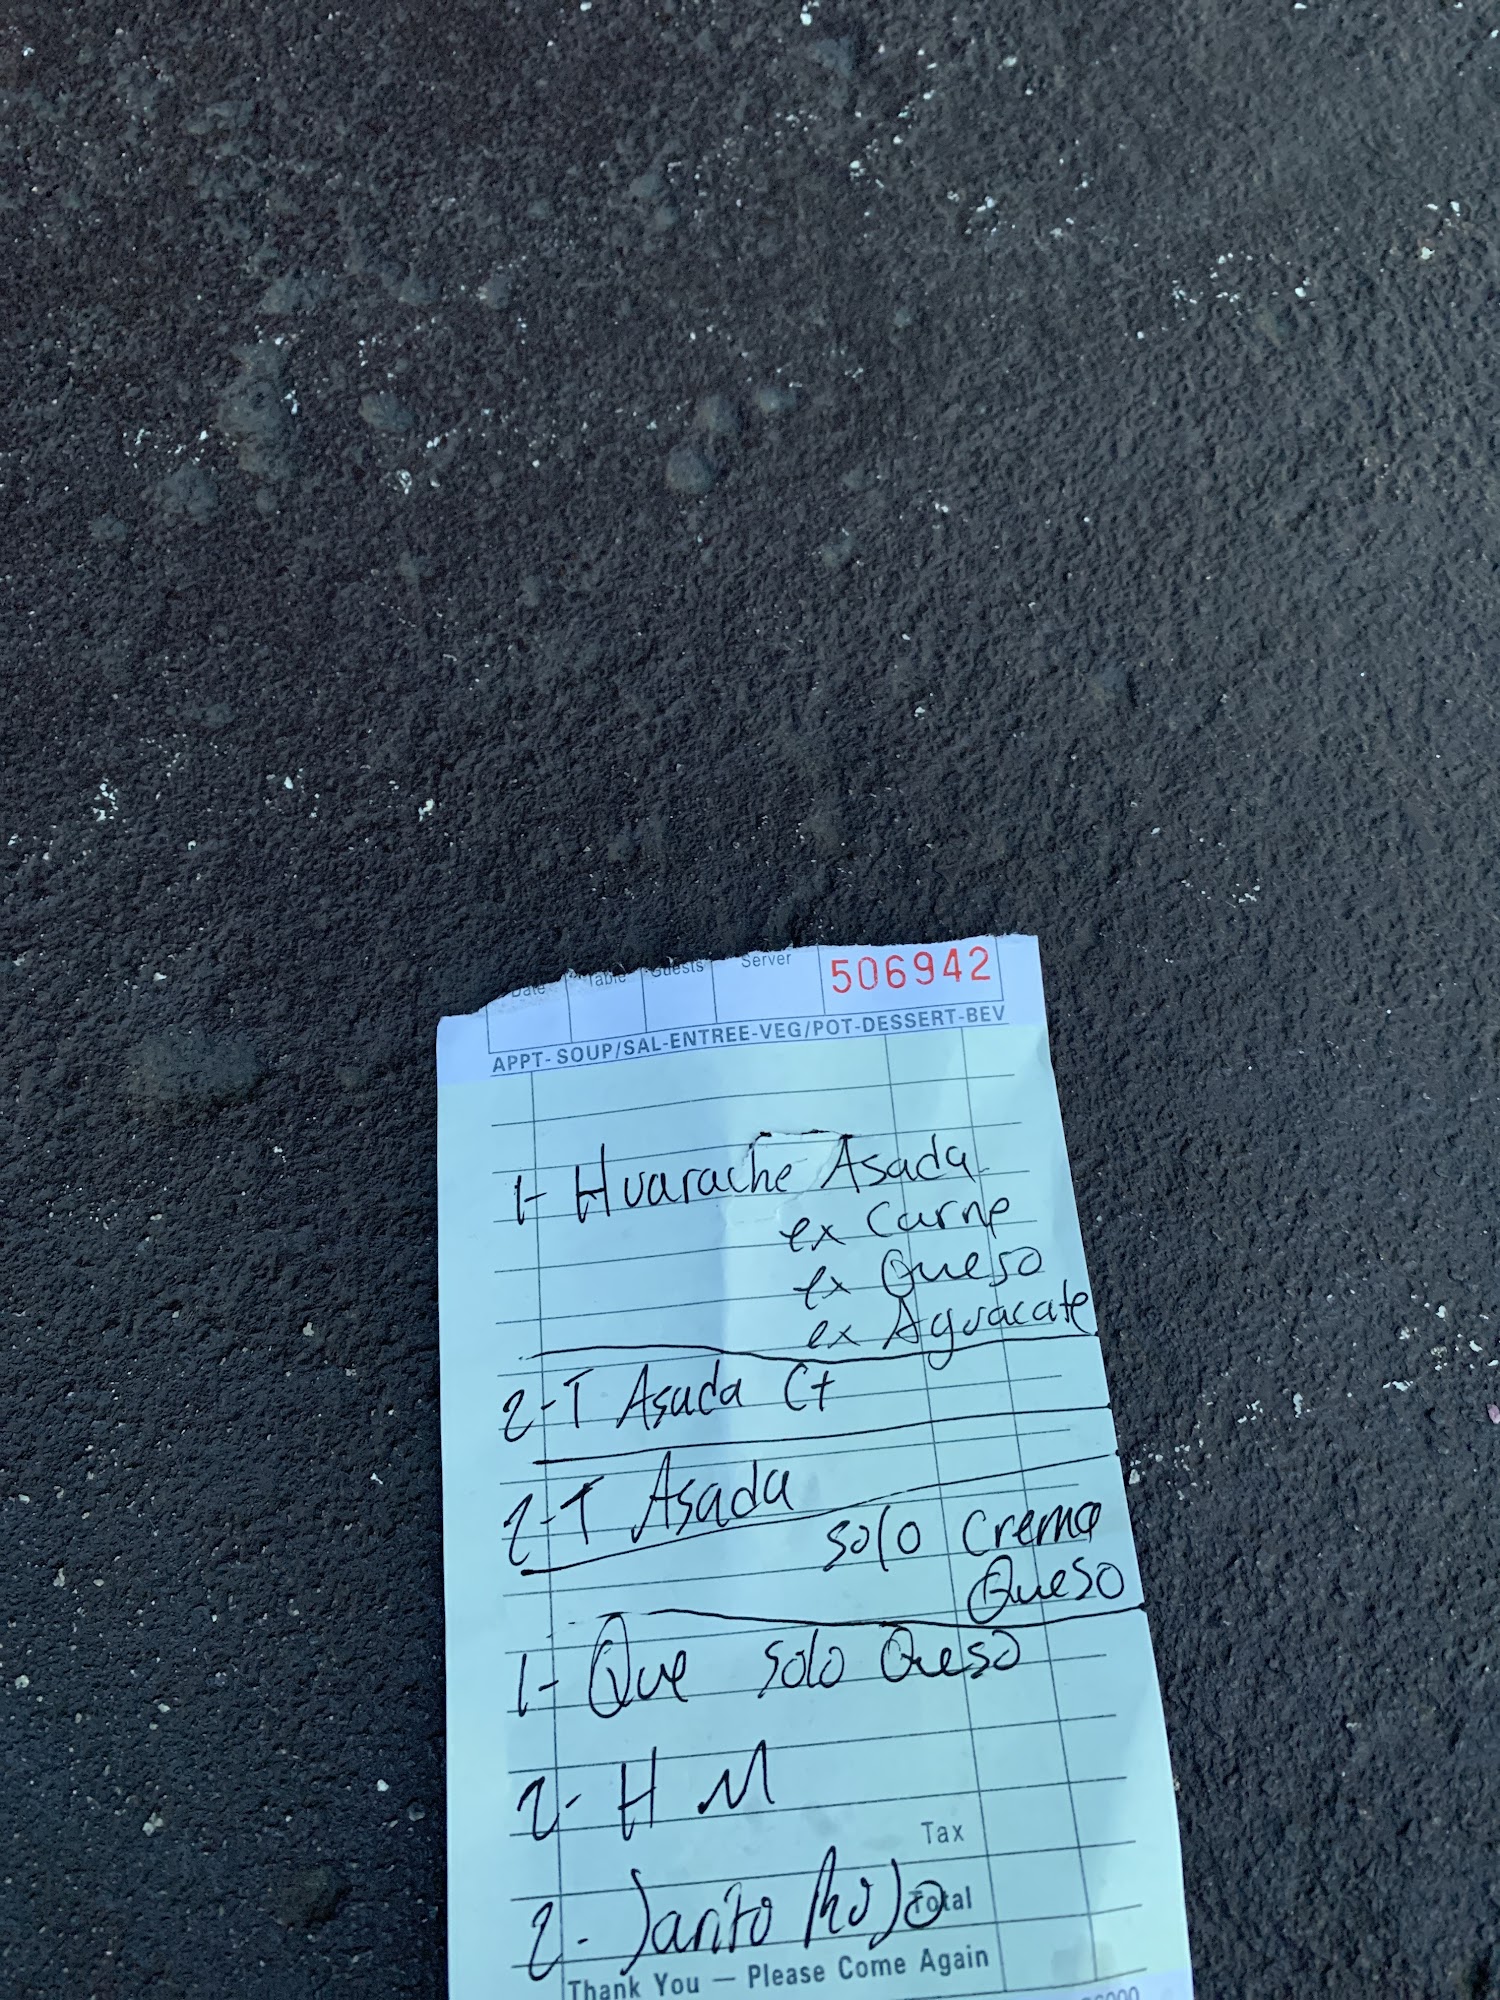 Date Table Guests Server 506942
APPT-SOUP/SAL-ENTREE-VEG/POT-DESSERT-BEV
1- Huarache Asada
ex Carne
ex Queso
ex Aguacate
2-T Asada Ct
2-T Asada
solo Crema
Queso
1- Que solo Queso
2- H M
Tax
2- Jarito Rojo
Total
Thank You — Please Come Again